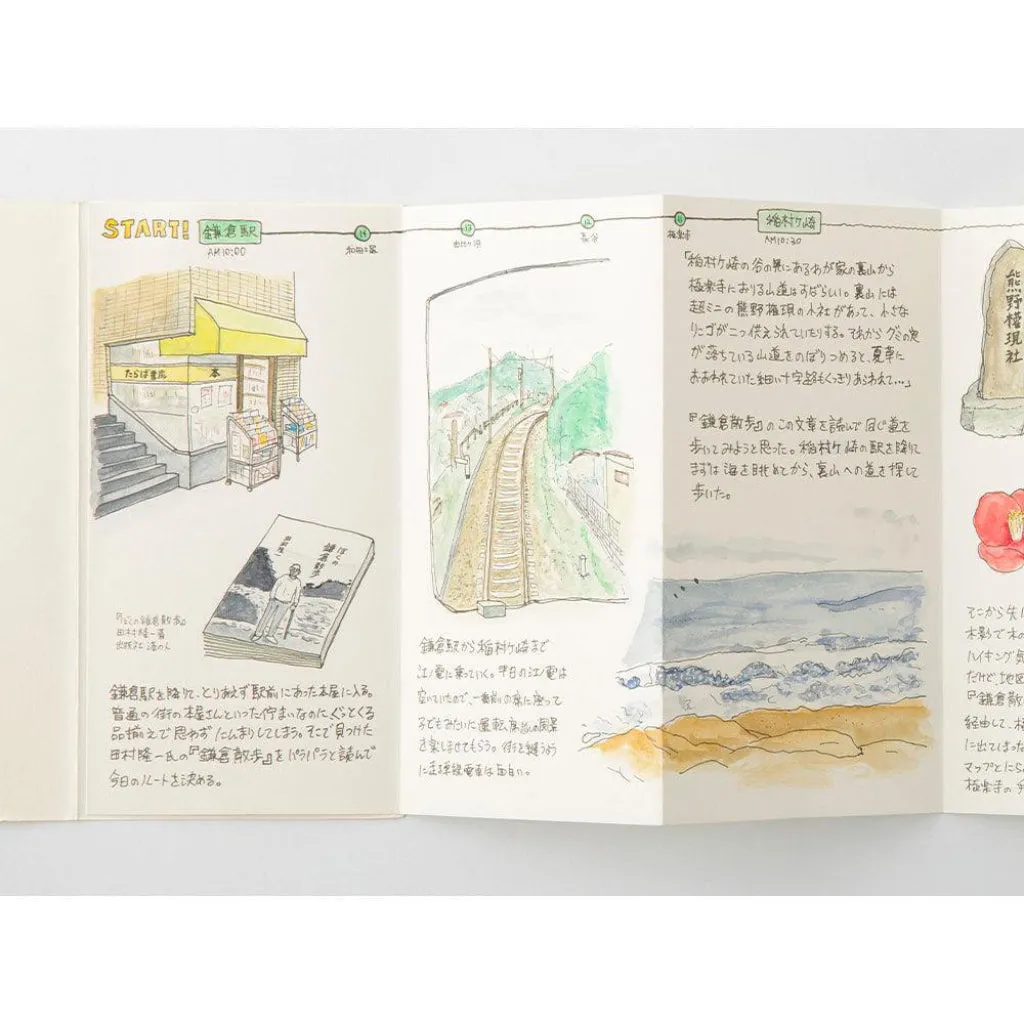 START!
鎌倉駅
AM10:00
14
和田塚
13
由比ヶ浜
12
長谷
11
極楽寺
稲村ヶ崎
AM10:30
たらば書房
本
ぼくの
鎌倉散歩
田村隆一
『ぼくの鎌倉散歩』
田村隆一著
出版社 港の人
鎌倉駅を降りて、とりあえず駅前にあった本屋に入る。
普通の街の本屋さんといった佇まいなのにぐっとくる
品揃えで思わずにんまりしてしまう。そこで見つけた
田村隆一氏の『鎌倉散歩』をパラパラと読んで
今日のルートを決める。
鎌倉駅から稲村ヶ崎まで
江ノ電に乗っていく。平日の江ノ電は
空いていたので、一番前の席に座って
子どもみたいに運転席前の風景
を楽しませてもらう。街を縫うよう
に走る単線電車は面白い。
「稲村ヶ崎の谷の奥にあるわが家の裏山から
極楽寺におりる山道はすばらしい。裏山には
超ミニの熊野権現の小社があって、小さな
リンゴが二つ供えられていたりする。それからグミの実
が落ちている山道をのぼりつめると、夏草に
おおわれていた細い十字路もくっきりあらわれて…」
『鎌倉散歩』のこの文章を読んで同じ道を
歩いてみようと思った。稲村ヶ崎の駅を降りて
まずは海を眺めてから、裏山への道を探して
歩いた。
熊野權現社
そこから先に
木影で木の
ハイキング気
だけど、地図
『鎌倉散
経由して、極
に出てしまった
マップとにら
極楽寺の